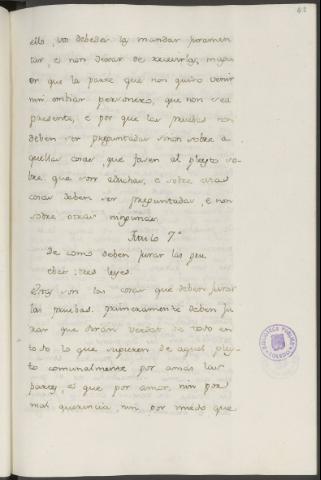 42
ello, los deben el mandar juramen
tar, e non dexar de recevirlas, mager
or que la parte que non quiso venir
nin embiar personero, que non sea
presente, e por que las pruebas non
deben ser preguntadas sinon sobre a
quellas cosas, que facen al pleyto so-
bre que son aduchas, e sobre estas
cosas deben ser preguntadas, e non
sobre otras ningunas.
Titulo 7.º
de como deben jurar las pru
ebas: tres leyes
Estas son las cosas que deben jurar
las pruebas. primeramente deben ju
rar que diran verdat de todo en
todo lo que supieren de aquel pley
to comunalmente por amas las
partes, e que por amor, nin por
mal querencia, nin por miedo que
BIBLIOTECA PUBLICA
TOLEDO